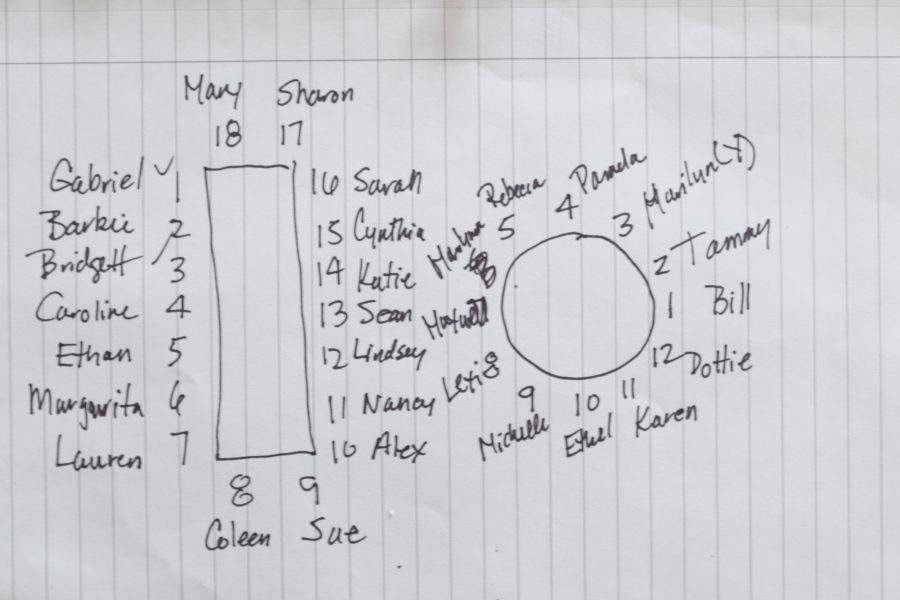 Mary Sharon
18 17
Gabriel ✓ 1
Barbie 2
Bridgett 3
Caroline 4
Ethan 5
Margarita 6
Lauren 7
8 9
Coleen Sue
16 Sarah
15 Cynthia
14 Katie
13 Sean
12 Lindsey
11 Nancy
10 Alex
Rebecca 5
4 Pamela
3 Marilyn (Y)
2 Tammy
1 Bill
12 Dottie
11 Karen
10 Ethel
9 Michelle
Lexi 8